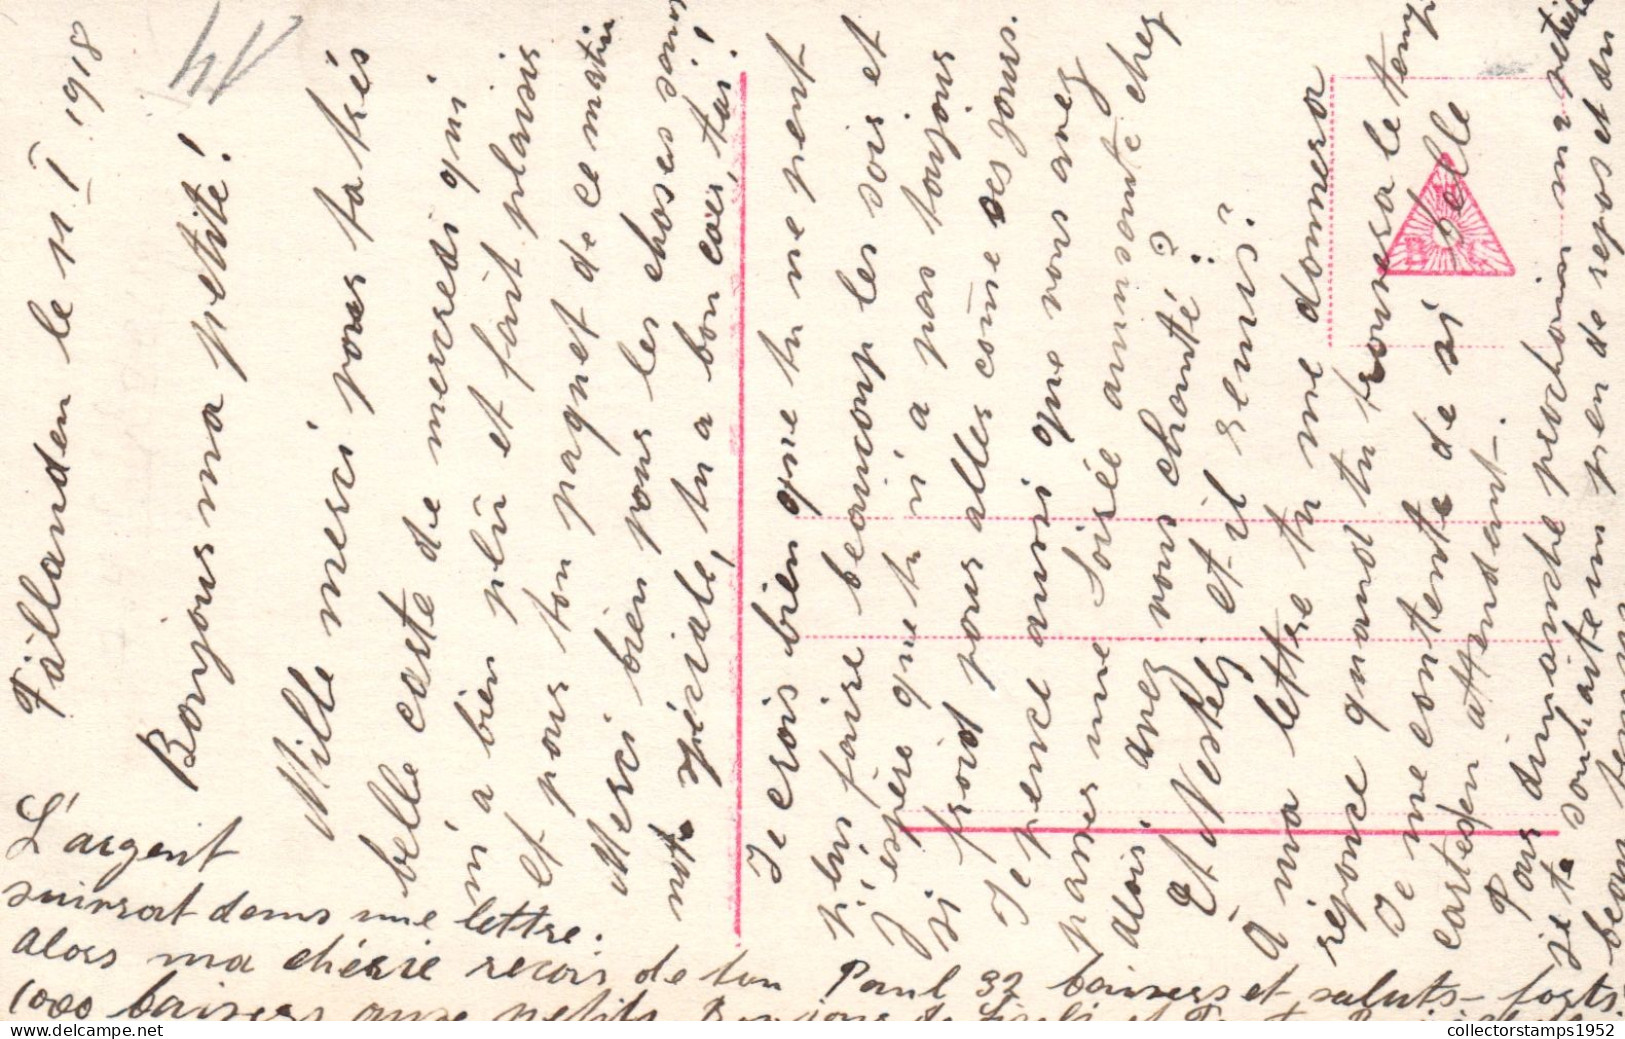 Fällanden le 11 I 1918
Bonjours ma petite!
Mille merci pour ta très
belle carte de mercredi qui
m'a bien plû et fait plaisir
et pour ton paquet de ce matin
Merci bien pour les choses
spéciale, tu a bon cœr, toi!
Je crois bien que tu ne peut
plus faire beaucoup les soir et
J'espère que tu n'a pas toujours
si froid pour aller come ces jours.
Je pence aussi que vous avez
passer une soirée amusante chez
alois avez vous chanté?
Et Nestelj et-il venus?
À ma lettre tu me donnera
réponce quand tu trouvera le temp
Je me contente de si belle
carte en attendent.
Pour dimanche prochain ma
je te souhaite un peu de repos et du
beau temps
L'argent
suivrat dans une lettre.
alors ma chérie recois de ton Paul 32 baisers et saluts-forts
1000 baisers aux petits
B C
collectorstamps1952
www.delcampe.net